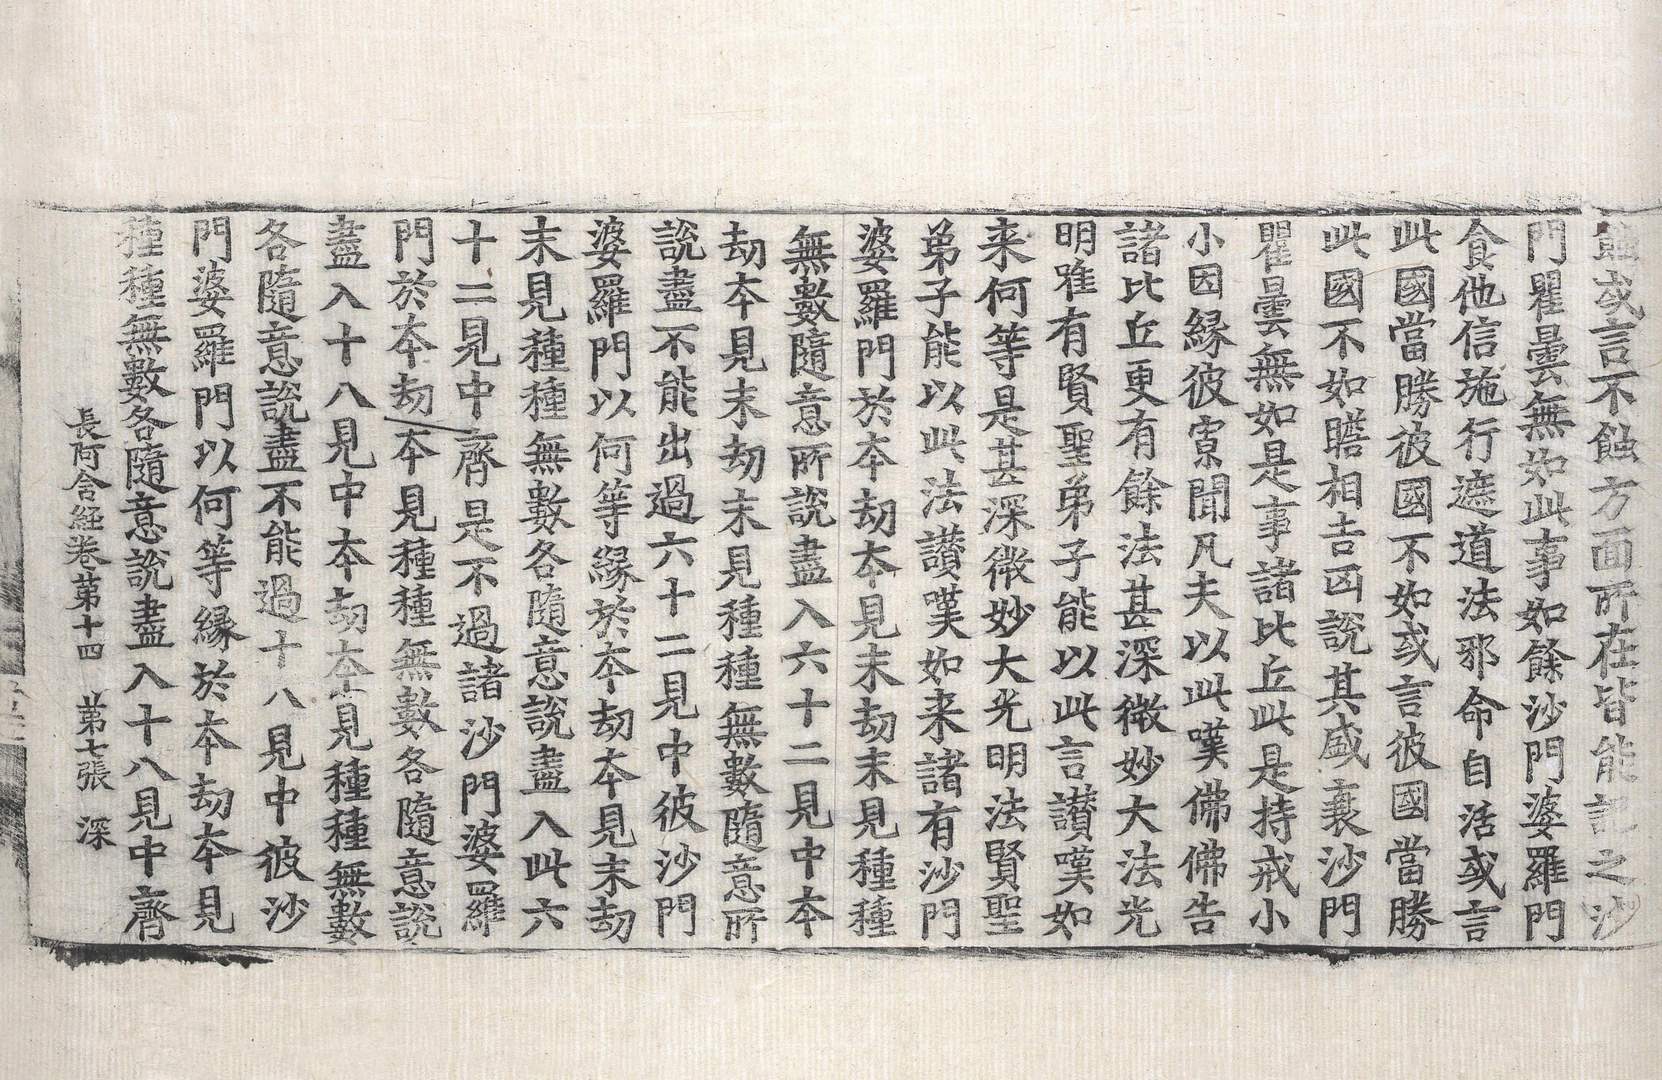 蝕或言不蝕方面所在皆能記之沙
門瞿曇無如此事如餘沙門婆羅門
食他信施行遮道法邪命自活或言
此國當勝彼國不如或言彼國當勝
此國不如瞻相吉凶說其盛衰沙門
瞿曇無如是事諸比丘此是持戒小
小因縁彼寡聞凡夫以此嘆佛佛告
諸比丘更有餘法甚深微妙大法光
明唯有賢聖弟子能以此言讃嘆如
来何等是甚深微妙大光明法賢聖
弟子能以此法讃嘆如来諸有沙門
婆羅門於本劫本見末劫末見種種
無數隨意所說盡入六十二見中本
劫本見末劫末見種種無數隨意所
說盡不能出過六十二見中彼沙門
婆羅門以何等縁於本劫本見末劫
末見種種無數各隨意說盡入此六
十二見中齊是不過諸沙門婆羅
門於本劫本見種種無數各隨意說
盡入十八見中本劫本見種種無數
各隨意說盡不能過十八見中彼沙
門婆羅門以何等縁於本劫本見
種種無數各隨意說盡入十八見中齊
長阿含經卷第十四 第七張 深